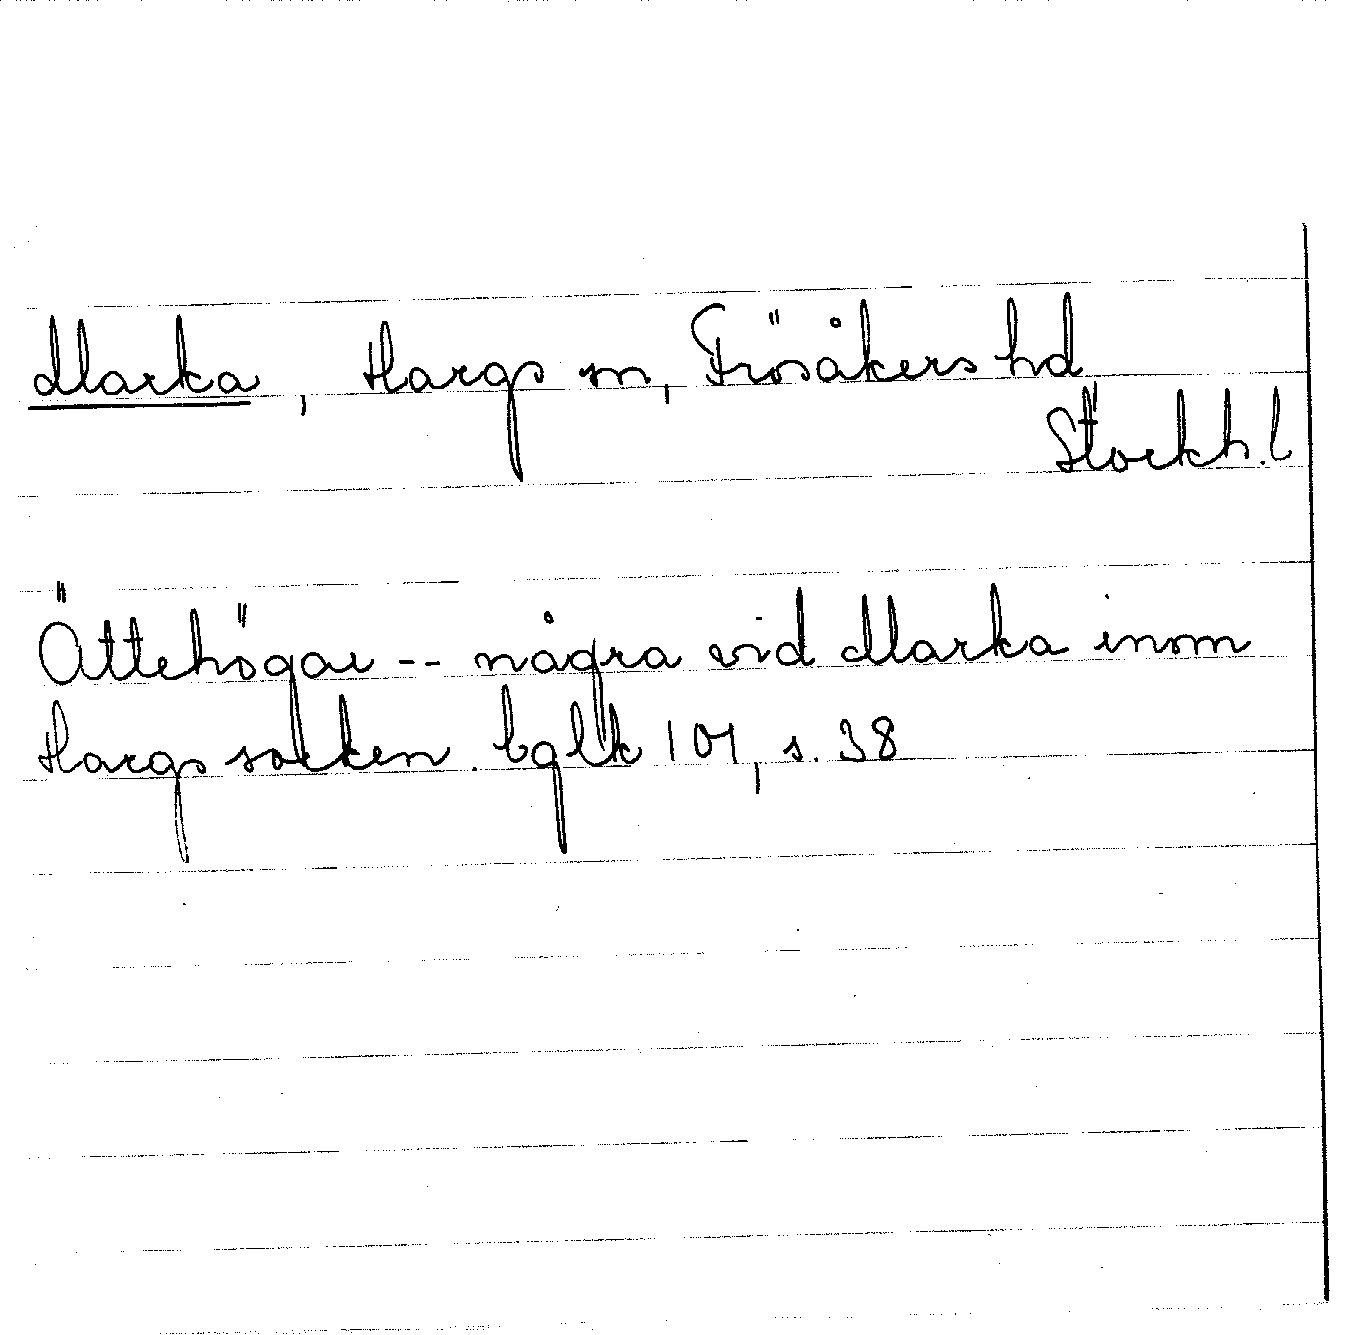 Marka, Hargs sn, Frösåkers hd
Stockh. l
Ättehögar -- några vid Marka inom
Hargs socken. bglk 101, s. 38